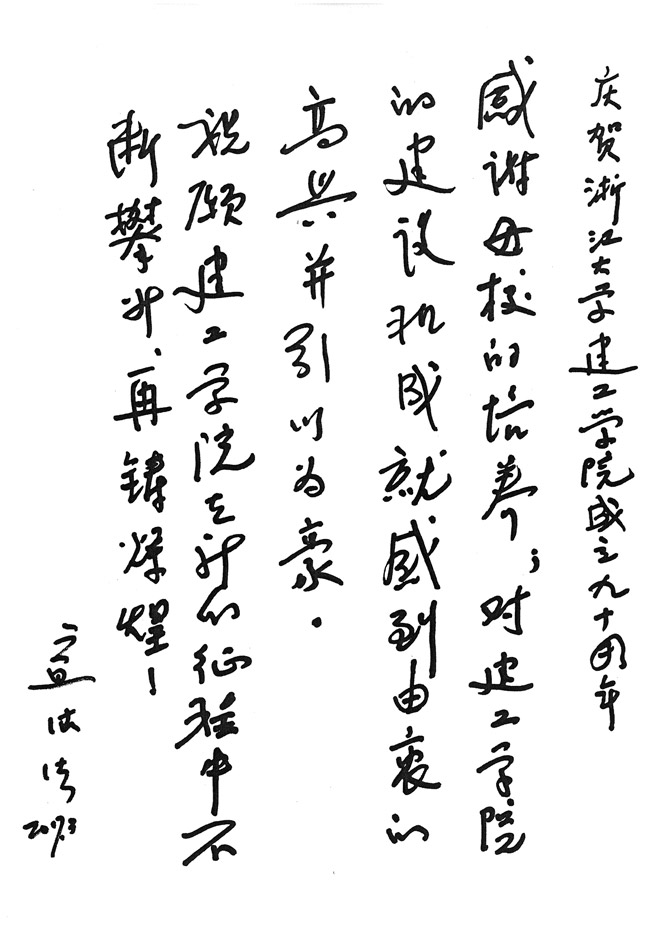 庆贺浙江大学建工学院成立九十周年
感谢母校的培养；对建工学院
的建设和成就感到由衷的
高兴并引以为豪。
祝愿建工学院在新的征程中不
断攀升、再铸辉煌！
宣
2017.3